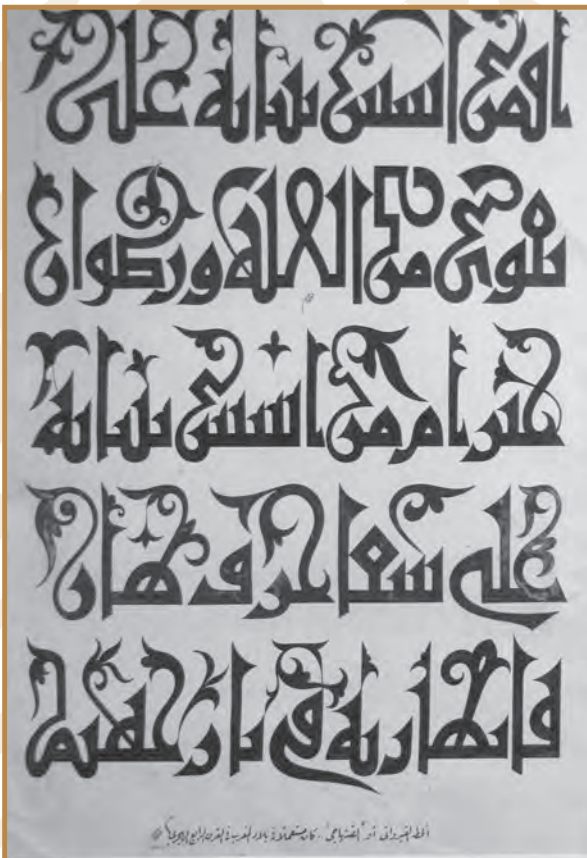 افمن اسس بنيانه على
تقوى من الله ورضوان
خير ام من اسس بنيانه
على شفا جرف هار
فانهار به في نار جهنم
الخط القيرواني أو "الصنهاجي". كان مستعملا في بلاد المغرب في القرن الرابع الهجري